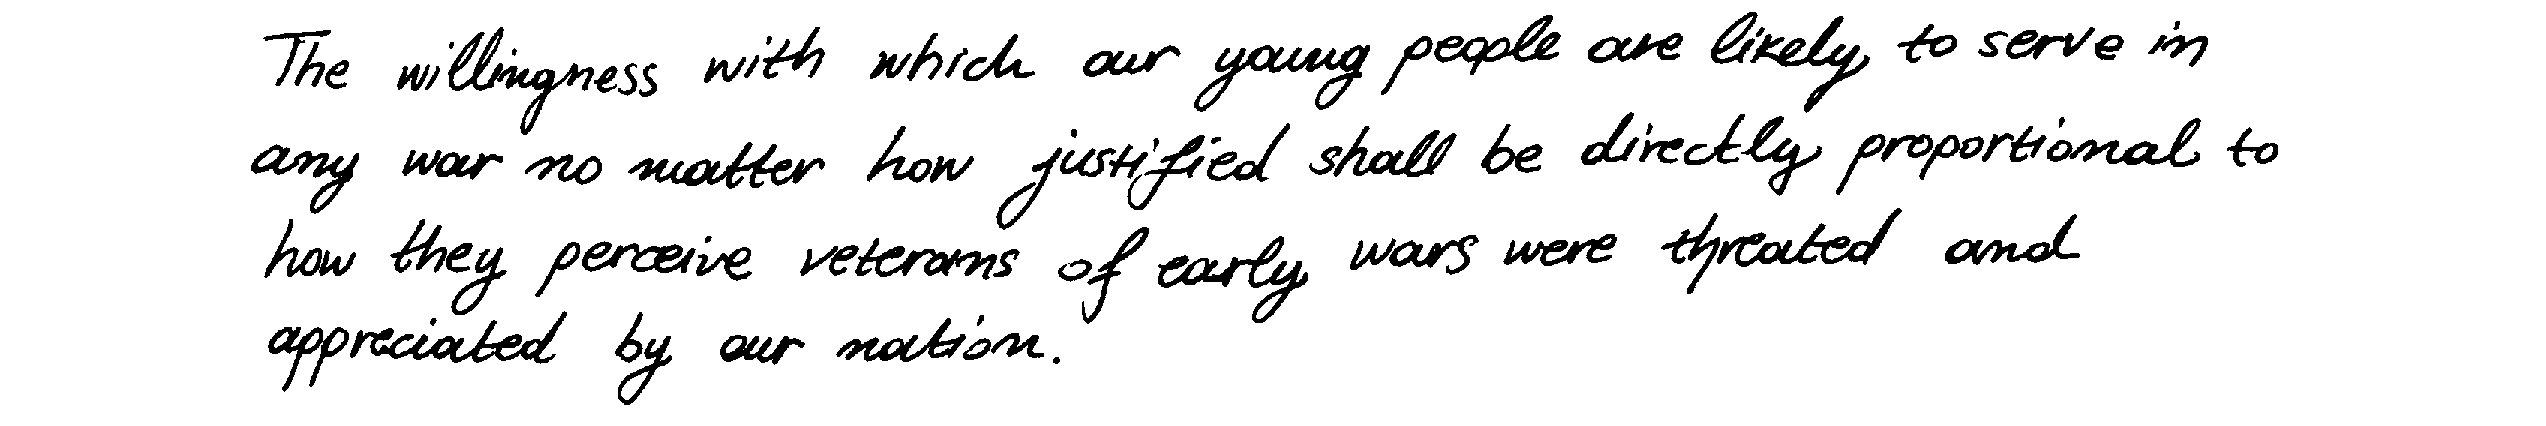 The willingness with which our young people are likely to serve in
any war no matter how justified shall be directly proportional to
how they perceive veterans of early wars were threated and
appreciated by our nation.